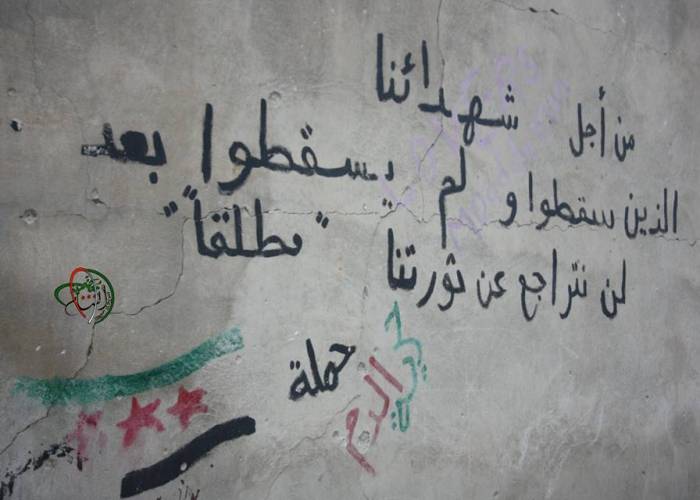 من أجل شهدائنا
الذين سقطوا و لم يسقطوا بعد
لن نتراجع عن ثورتنا "مطلقاً"
حملة
الدم